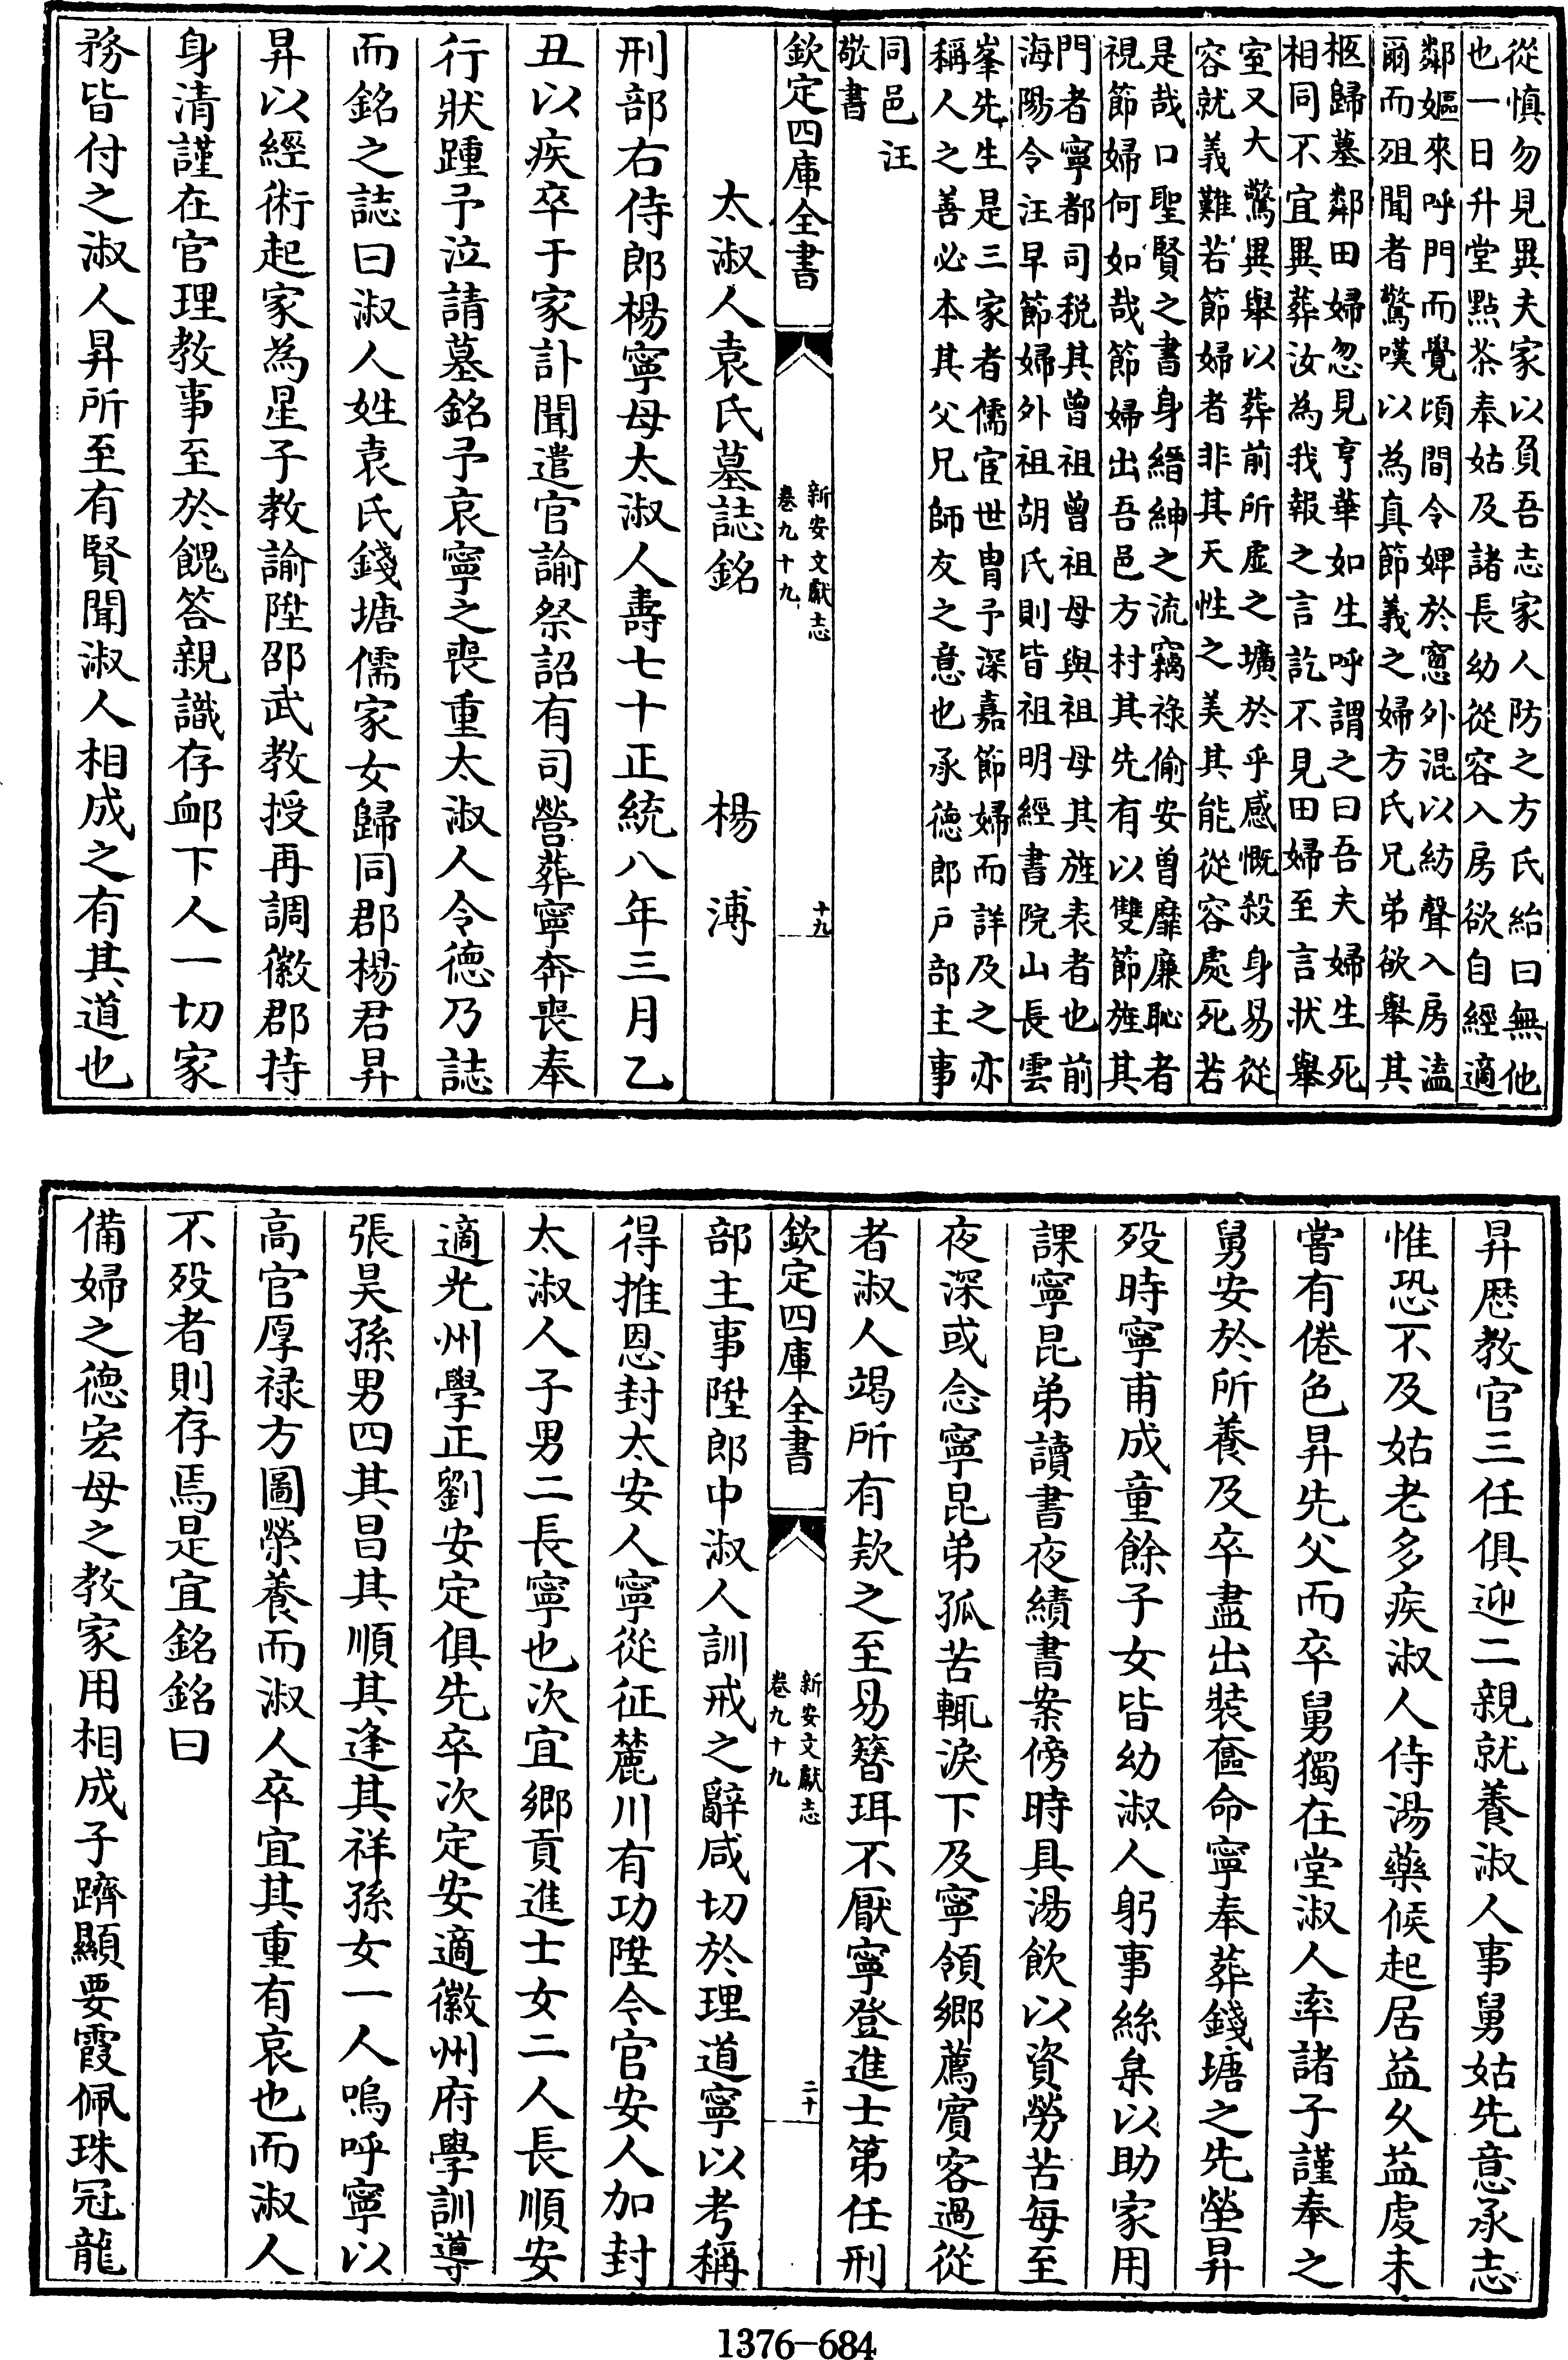 從慎勿見異夫家以負吾志家人防之方氏紿曰無他
也一日升堂點茶奉姑及諸長幼從容入房欲自經適
鄰嫗來呼門而覺頃間令婢於窻外混以紡聲入房溘
爾而殂聞者驚嘆以為真節義之婦方氏兄弟欲舉其
柩歸墓鄰田婦忽見亨華如生呼謂之曰吾夫婦生死
相同不宜異葬汝為我報之言訖不見田婦至言狀舉
室又大驚異舉以葬前所虛之壙於乎感慨殺身易從
容就義難若節婦者非其天性之美其能從容處死若
是哉口聖賢之書身縉紳之流竊祿偷安曾靡廉恥者
視節婦何如哉節婦出吾邑方村其先有以雙節旌其
門者寧都司稅其曾祖曾祖母與祖母其旌表者也前
海陽令汪早節婦外祖胡氏則皆祖明經書院山長雲
峯先生是三家者儒宦世胄予深嘉節婦而詳及之亦
稱人之善必本其父兄師友之意也承德郎戶部主事
同邑汪
敬書
欽定四庫全書
新安文獻志
卷九十九
十九
太淑人袁氏墓誌銘　楊溥
刑部右侍郎楊寧母太淑人壽七十正統八年三月乙
丑以疾卒于家訃聞遣官諭祭詔有司營葬寧奔喪奉
行狀踵予泣請墓銘予哀寧之喪重太淑人令德乃誌
而銘之誌曰淑人姓袁氏錢塘儒家女歸同郡楊君昇
昇以經術起家為星子教諭陞邵武教授再調徽郡持
身清謹在官理教事至於餽答親識存卹下人一切家
務皆付之淑人昇所至有賢聞淑人相成之有其道也
昇歷教官三任俱迎二親就養淑人事舅姑先意承志
惟恐不及姑老多疾淑人侍湯藥候起居益久益虔未
嘗有倦色昇先父而卒舅獨在堂淑人率諸子謹奉之
舅安於所養及卒盡出裝奩命寧奉葬錢塘之先塋昇
歿時寧甫成童餘子女皆幼淑人躬事絲枲以助家用
課寧昆弟讀書夜績書案傍時具湯飲以資勞苦每至
夜深或念寧昆弟孤苦輒淚下及寧領鄉薦賓客過從
者淑人竭所有欵之至易簪珥不厭寧登進士第任刑
欽定四庫全書
新安文獻志
卷九十九
二十
部主事陞郎中淑人訓戒之辭咸切於理道寧以考稱
得推恩封太安人寧從征麓川有功陞令官安人加封
太淑人子男二長寧也次宜鄉貢進士女二人長順安
適光州學正劉安定俱先卒次定安適徽州府學訓導
張昊孫男四其昌其順其逢其祥孫女一人嗚呼寧以
高官厚祿方圖榮養而淑人卒宜其重有哀也而淑人
不歿者則存焉是宜銘銘曰
備婦之德宏母之教家用相成子躋顯要霞佩珠冠龍
1376-684